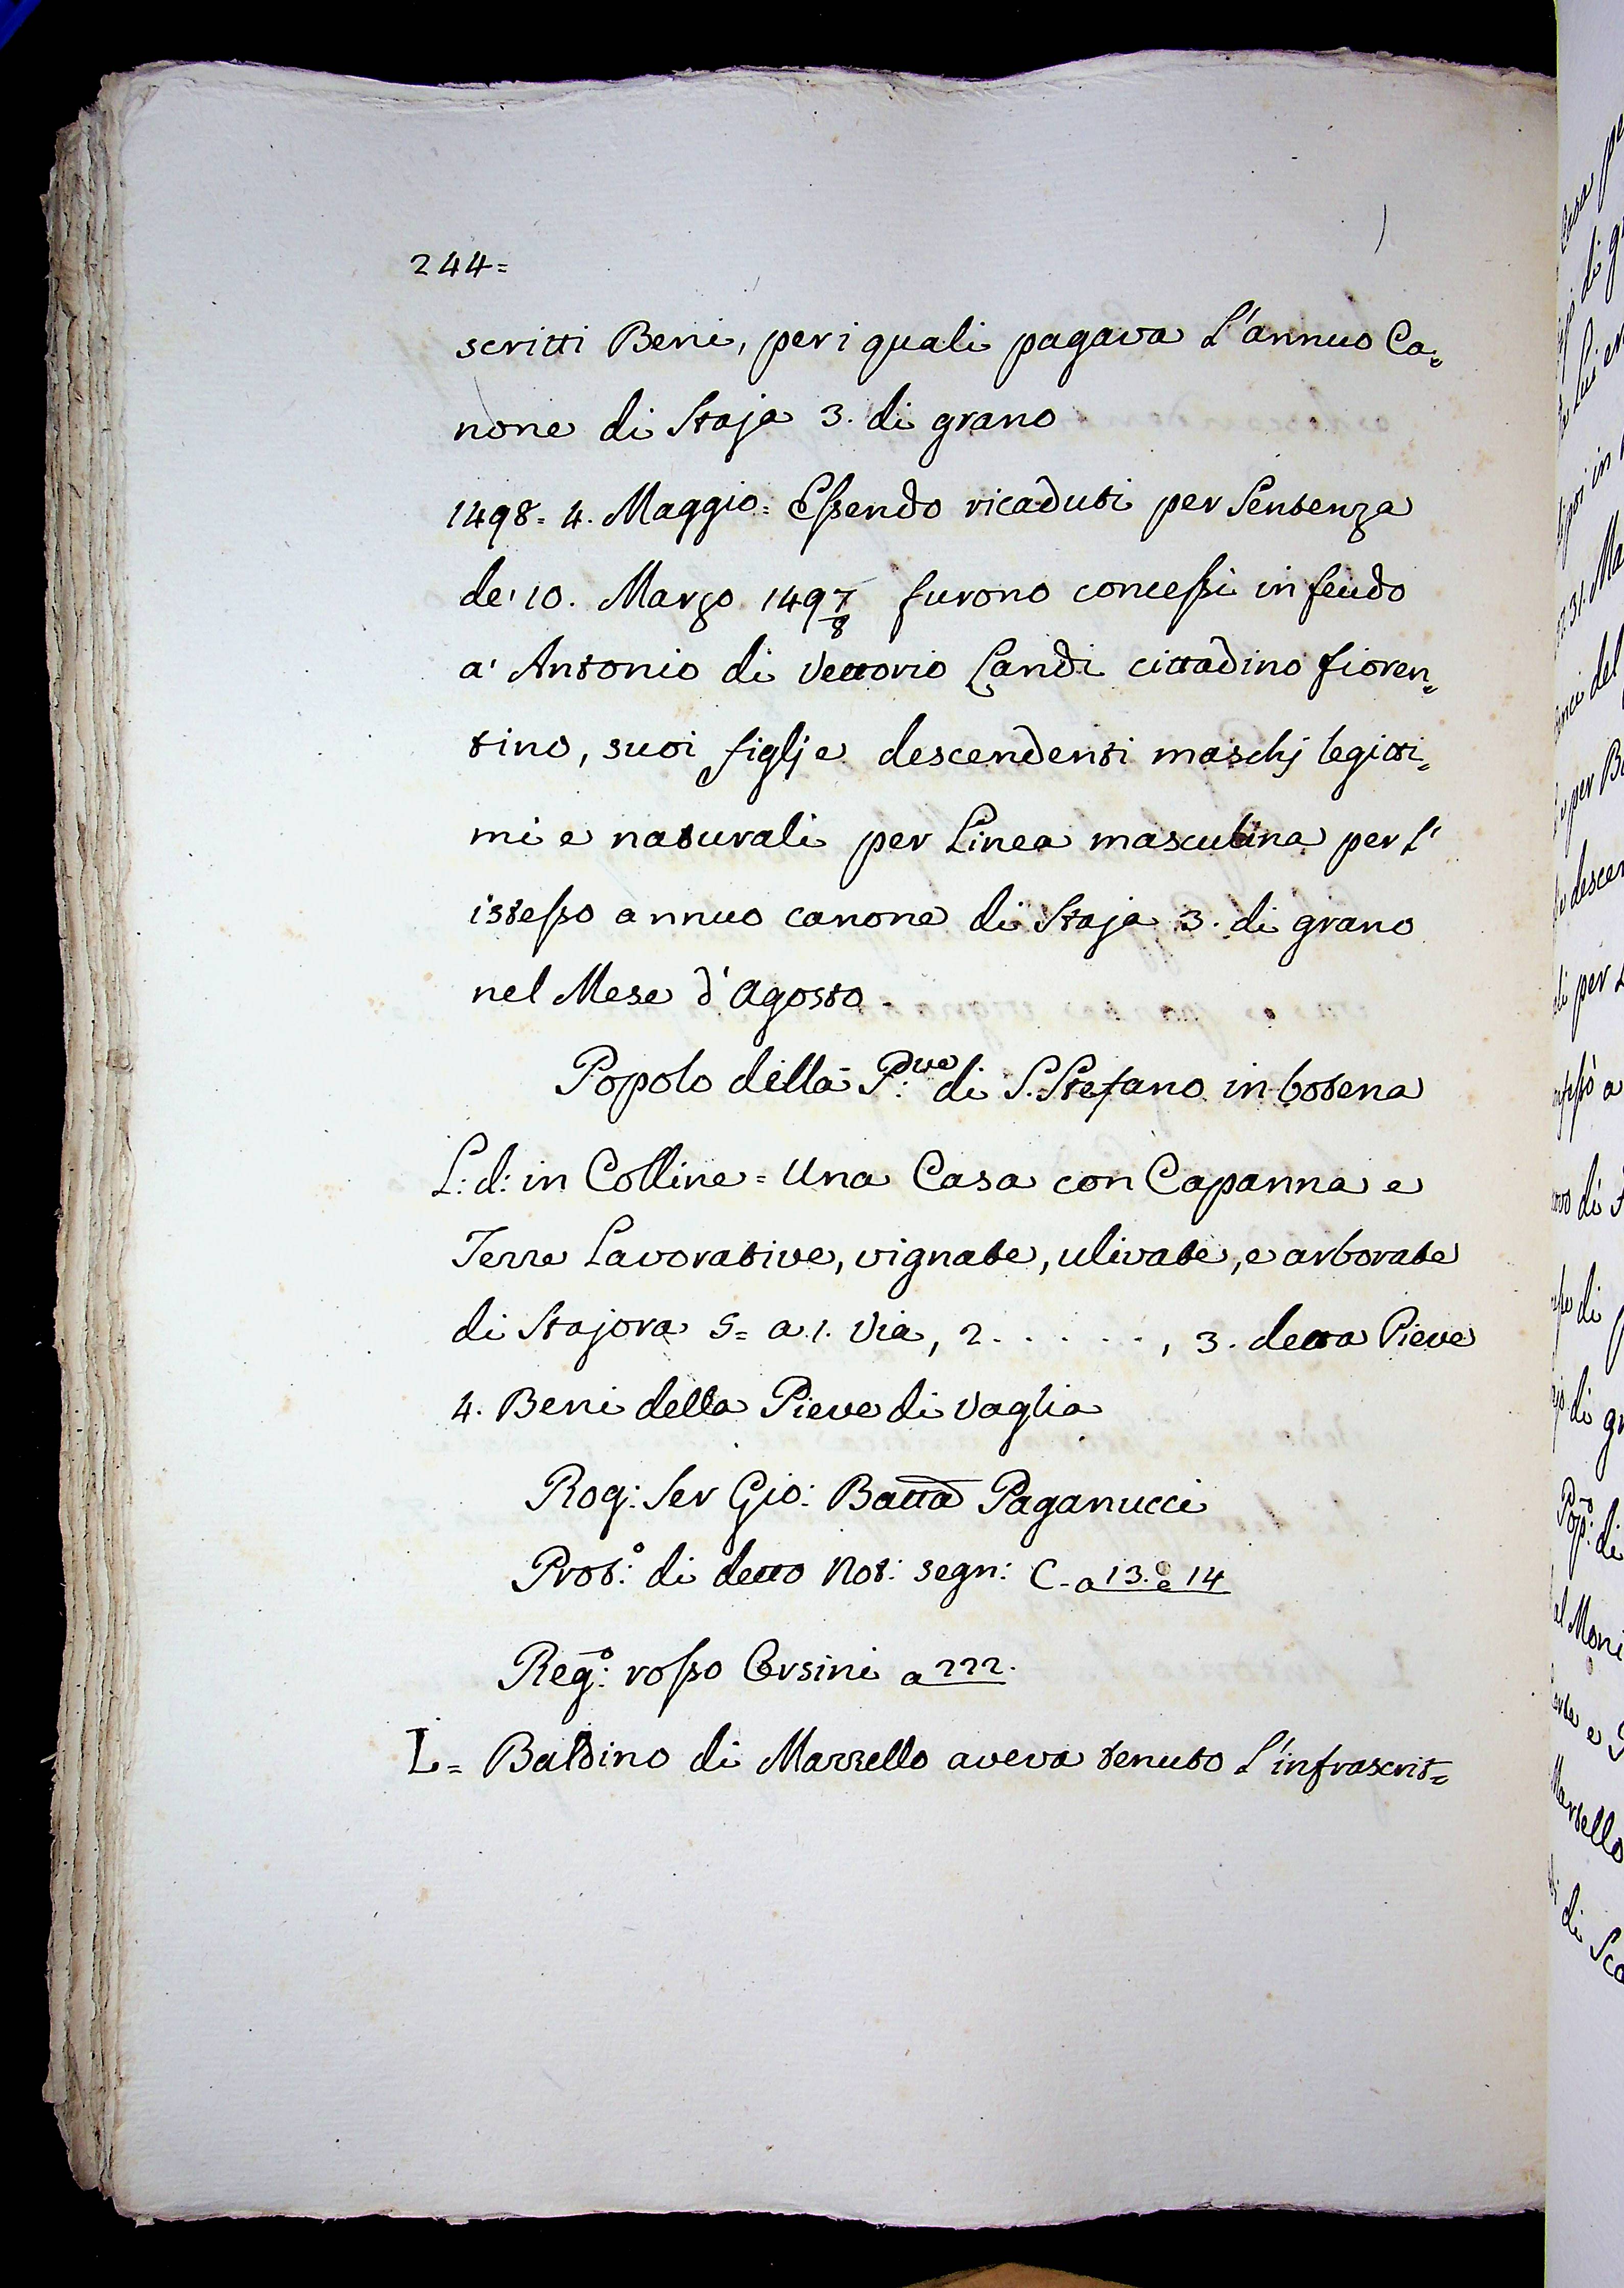 244=
scritti Beni, per i quali pagava L'annuo Ca=
none di Staja 3. di grano
1498= 4. Maggio= Essendo ricaduti per Sentenza
de' 10. Marzo 1497/8 furono concessi in feudo
a' Antonio di Vettorio Landi cittadino fioren=
tino, suoi figlj e descendenti maschj legitti=
mi e naturali per Linea masculina per l'
istesso annuo canone di Staja 3. di grano
nel Mese d'Agosto.
Popolo della P:ve di S. Stefano in botena
L: d: in Colline = Una Casa con Capanna e
Terre Lavorative, vignate, ulivate, e arborate
di Stajora 5= a 1. Via, 2. . . . . . , 3. detta Pieve
4. Beni della Pieve di Vaglia
Rog: Ser Gio: Batta Paganucci
Prot:o di detto Not: segn: C. a 13. e 14
Reg:o rosso Orsini a 222.
L= Baldino di Marzello aveva tenuto L'infrascrit=